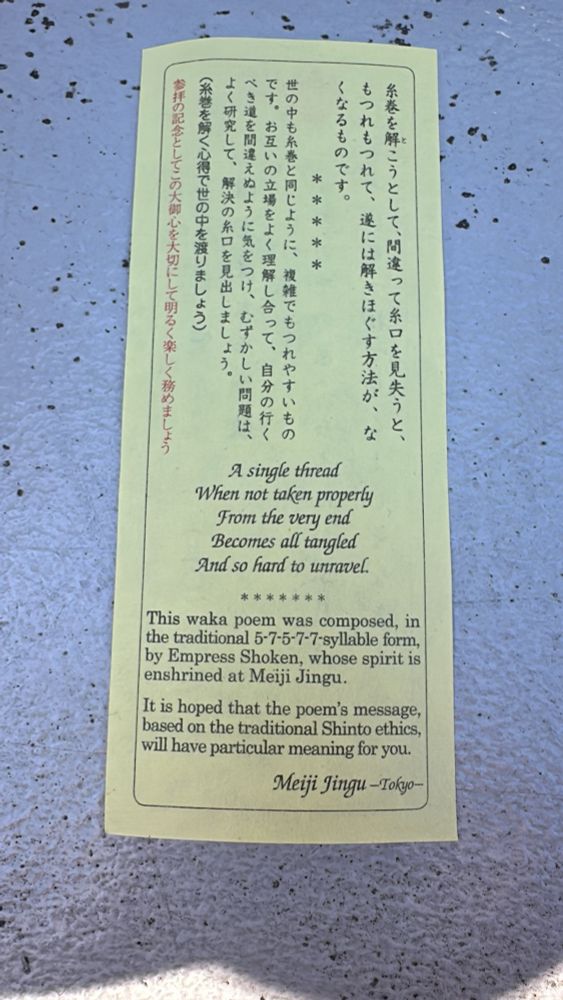 糸巻を解こうとして、間違って糸口を見失うと、
もつれもつれて、遂には解きほぐす方法が、な
くなるものです。
＊＊＊＊＊
世の中も糸巻と同じように、複雑でもつれやすいもの
です。お互いの立場をよく理解し合って、自分の行く
べき道を間違えぬように気をつけ、むずかしい問題は、
よく研究して、解決の糸口を見出しましょう。
(糸巻を解く心得で世の中を渡りましょう)
参拝の記念としてこの大御心を大切にして明るく楽しく務めましょう
A single thread
When not taken properly
From the very end
Becomes all tangled
And so hard to unravel.
*******
This waka poem was composed, in
the traditional 5-7-5-7-7-syllable form,
by Empress Shoken, whose spirit is
enshrined at Meiji Jingu.
It is hoped that the poem's message,
based on the traditional Shinto ethics,
will have particular meaning for you.
Meiji Jingu –Tokyo–